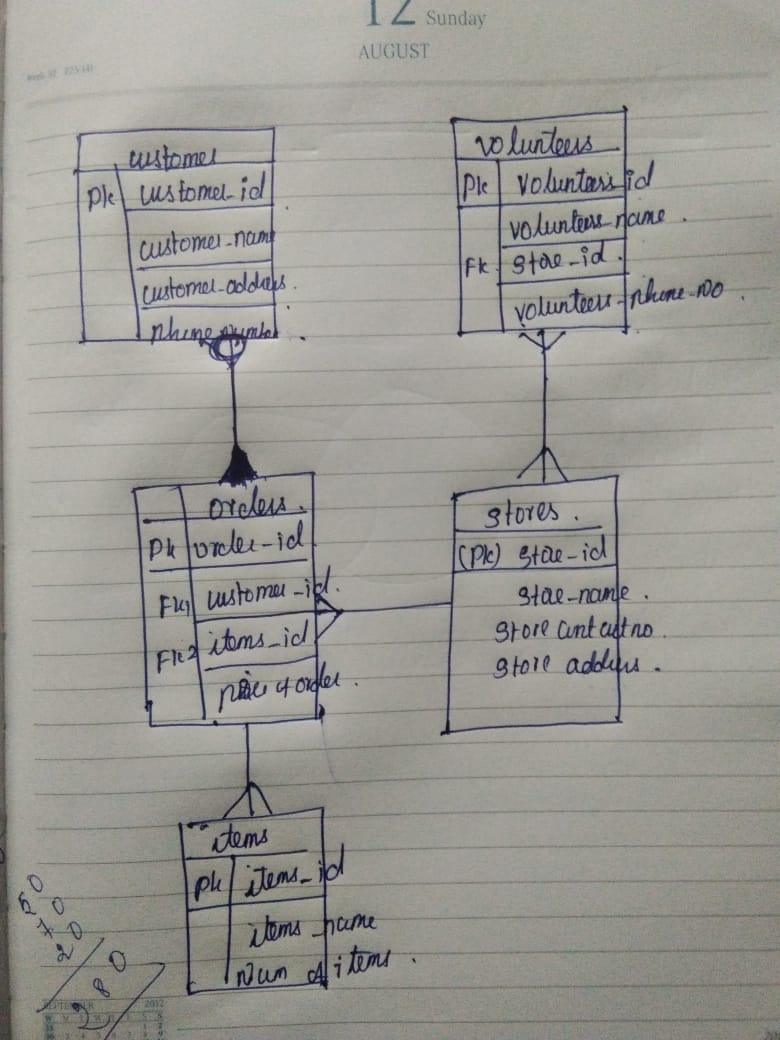 12 Sunday
AUGUST
customer
Pk customer_id
customer_name
customer_address.
phone_number
volunteers
Pk volunteers_id
volunteers_name.
Fk store_id.
volunteers_phone_no.
orders.
Pk order_id
Fk1 customer_id.
Fk2 items_id
price of order.
stores.
(Pk) store_id
store_name.
store contact no
store address.
items
Pk items_id
items_name
Num of items.
50
70
20
280
SEPTEMBER 2012